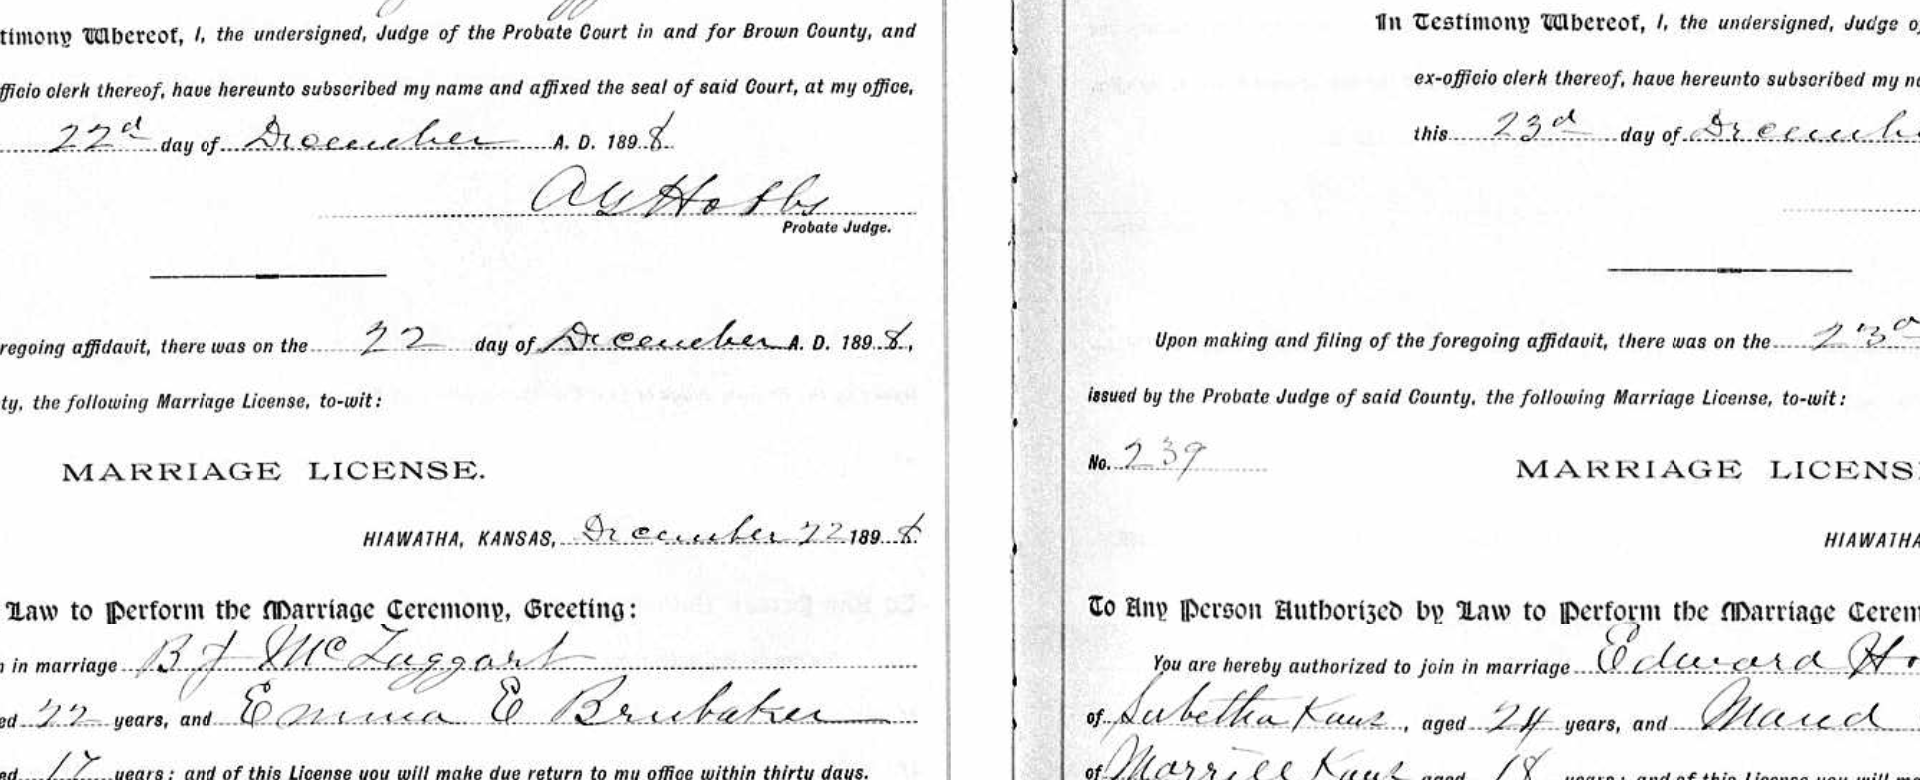 timony Whereof, I, the undersigned, Judge of the Probate Court in and for Brown County, and
fficio clerk thereof, have hereunto subscribed my name and affixed the seal of said Court, at my office,
22d day of December A. D. 1898.
A G Hobbs
Probate Judge.
regoing affidavit, there was on the 22 day of December A. D. 1898,
ty, the following Marriage License, to-wit:
MARRIAGE LICENSE.
HIAWATHA, KANSAS, December 22 1898.
Law to Perform the Marriage Ceremony, Greeting:
n in marriage B J McTaggart
ed 22 years, and Emma E Brubaker
ed 17 years; and of this License you will make due return to my office within thirty days.
In Testimony Whereof, I, the undersigned, Judge o
ex-officio clerk thereof, have hereunto subscribed my na
this 23d day of Decemb
Upon making and filing of the foregoing affidavit, there was on the 23d
issued by the Probate Judge of said County, the following Marriage License, to-wit:
No. 239
MARRIAGE LICENS
HIAWATHA
To Any Person Authorized by Law to Perform the Marriage Cerem
You are hereby authorized to join in marriage Edward Ho
of Sabetha Kans, aged 24 years, and Maud
of Morrill Kans aged 18 years; and of this License you will m